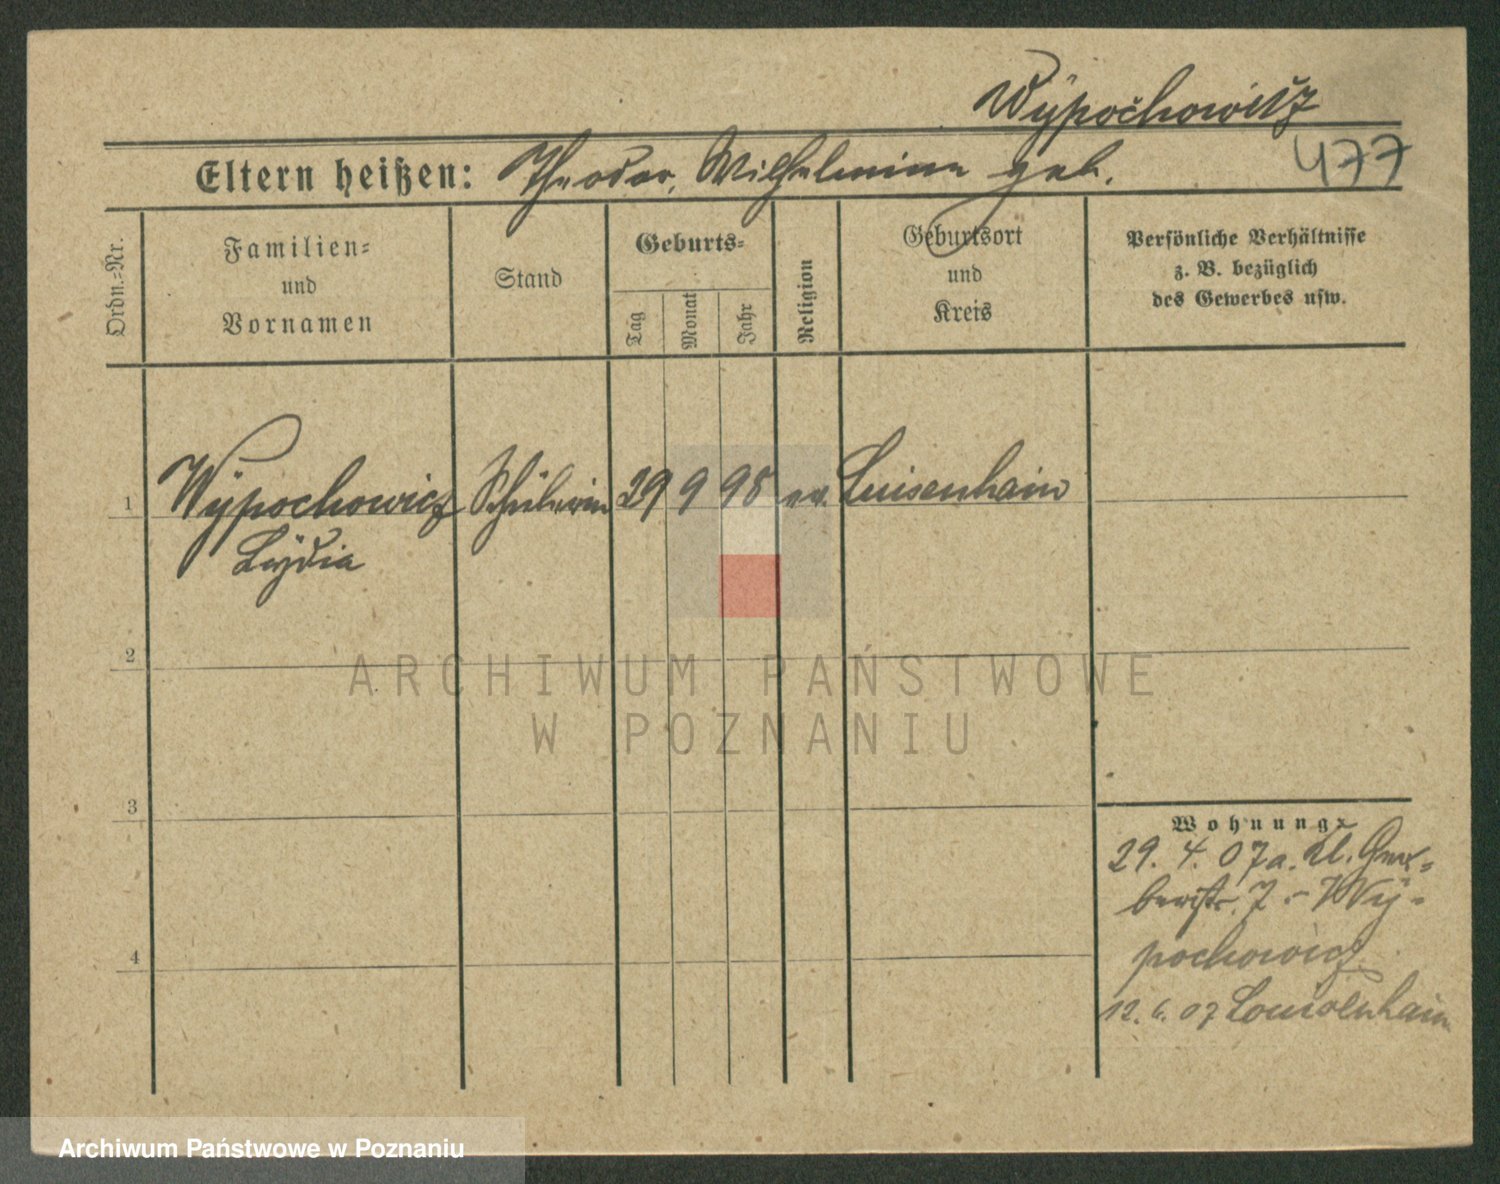 Wÿpochowicz
Eltern heißen: Theodor, Wilhelmine geb. 477
Ordn.-Nr.
Familien-
und
Vornamen
Stand
Geburts-
Tag
Monat
Jahr
Religion
Geburtsort
und
Kreis
Persönliche Verhältnisse
z. B. bezüglich
des Gewerbes usw.
1 Wÿpochowicz Schülerin 29 9 98 ev. Luisenhain
Lÿdia
2
3
4
Wohnung:
29. 4. 07 a. Kl. Ger-
berstr. 7 - Wÿ-
pochowicz
12. 6. 07 Louisenhain
ARCHIWUM PAŃSTWOWE
W POZNANIU
Archiwum Państwowe w Poznaniu